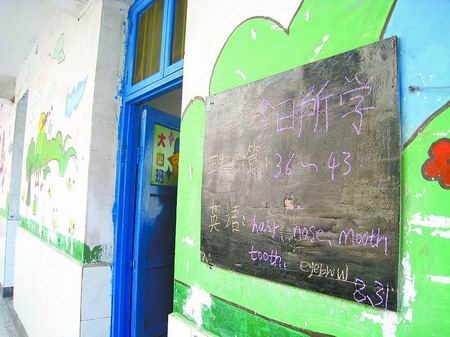 今日所学
珠心算:36~43
英语:hair、nose、mouth
tooth、eyebrow
8.31
大
班